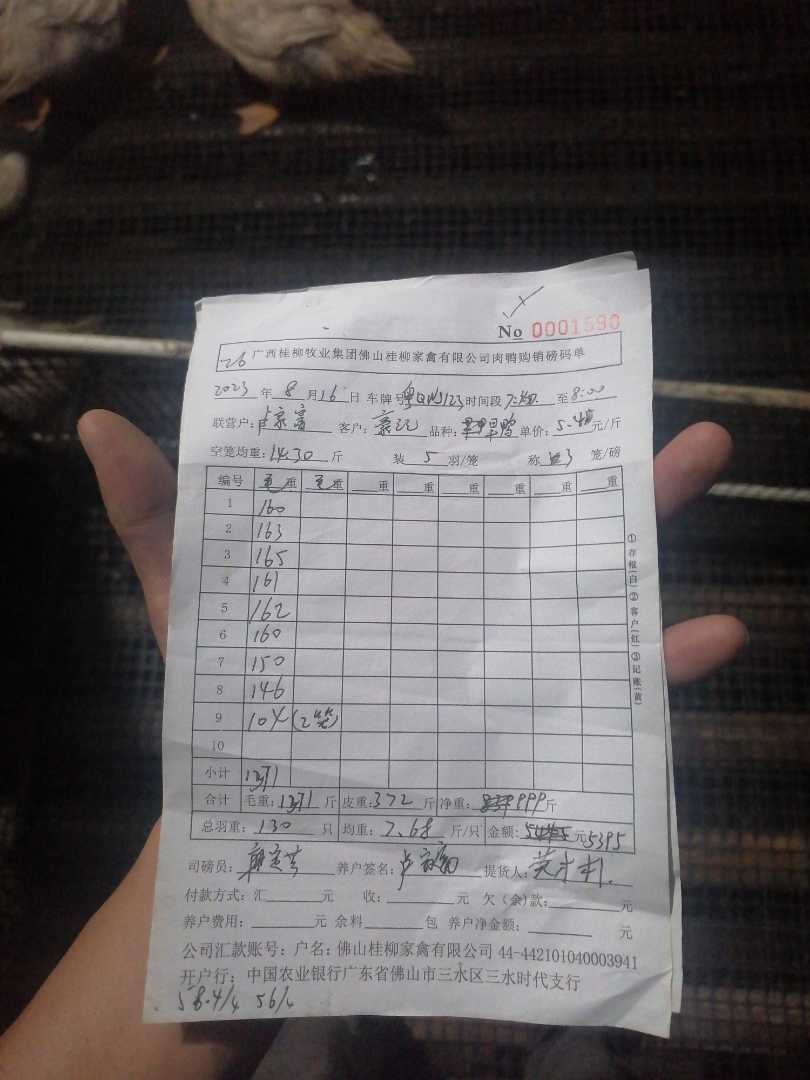 No 0001590
26 广西桂柳牧业集团佛山桂柳家禽有限公司肉鸭购销磅码单
2023 年 8 月 16 日 车牌号 时间段 至 8:00
联营户: 卢家富 客户: 品种: 单价: 5.4 元/斤
空笼均重: 14.30 斤 装 5 羽/笼 称 3 笼/磅
编号 毛重 毛重 重 重 重 重 重 重
1 160
2 163
3 165
4 161
5 162
6 160
7 150
8 146
9 104 (2笼)
10
小计 1371
合计 毛重: 1371 斤 皮重: 372 斤 净重: 999 斤
总羽重: 130 只 均重: 7.68 斤/只 金额: 元 5395
司磅员: 养户签名: 卢家富 提货人:
付款方式: 汇 元 收: 元 欠(余)款: 元
养户费用: 元 余料 包 养户净金额: 元
公司汇款账号: 户名: 佛山桂柳家禽有限公司 44-442101040003941
开户行: 中国农业银行广东省佛山市三水区三水时代支行
58.4/4 56/4
①存根(白)②客户(红)③记账(黄)